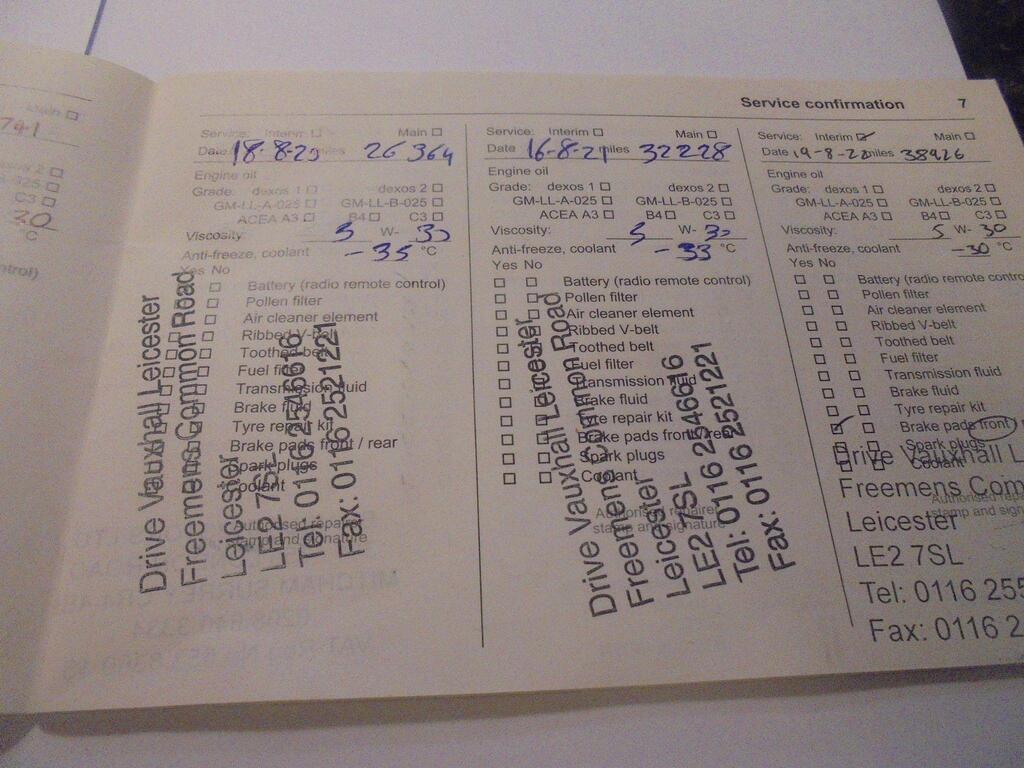 Service confirmation 7
Main ☐
741
30
°C
Service: Interim ☐ Main ☐
Date 18-8-20 miles 26364
Engine oil
Grade: dexos 1 ☐ dexos 2 ☐
GM-LL-A-025 ☐ GM-LL-B-025 ☐
ACEA A3 ☐ B4 ☐ C3 ☐
Viscosity: 5 W- 30
Anti-freeze, coolant -35 °C
Yes No
Battery (radio remote control)
Pollen filter
Air cleaner element
Ribbed V-belt
Toothed belt
Fuel filter
Transmission fluid
Brake fluid
Tyre repair kit
Brake pads front / rear
Spark plugs
Coolant
Authorised repairer
stamp and signature
Drive Vauxhall Leicester
Freemens Common Road
Leicester
LE2 7SL
Tel: 0116 2546616
Fax: 0116 2521221
Service: Interim ☐ Main ☐
Date 16-8-21 miles 32228
Engine oil
Grade: dexos 1 ☐ dexos 2 ☐
GM-LL-A-025 ☐ GM-LL-B-025 ☐
ACEA A3 ☐ B4 ☐ C3 ☐
Viscosity: 5 W- 30
Anti-freeze, coolant -33 °C
Yes No
Battery (radio remote control)
Pollen filter
Air cleaner element
Ribbed V-belt
Toothed belt
Fuel filter
Transmission fluid
Brake fluid
Tyre repair kit
Brake pads front / rear
Spark plugs
Coolant
Authorised repairer
stamp and signature
Drive Vauxhall Leicester
Freemens Common Road
Leicester
LE2 7SL
Tel: 0116 2546616
Fax: 0116 2521221
Service: Interim ☑ Main ☐
Date 19-8-22 miles 38926
Engine oil
Grade: dexos 1 ☐ dexos 2 ☐
GM-LL-A-025 ☐ GM-LL-B-025 ☐
ACEA A3 ☐ B4 ☐ C3 ☐
Viscosity: 5 W- 30
Anti-freeze, coolant -30 °C
Yes No
Battery (radio remote contro
Pollen filter
Air cleaner element
Ribbed V-belt
Toothed belt
Fuel filter
Transmission fluid
Brake fluid
Tyre repair kit
Brake pads front
Spark plugs
Coolant
Authorised repa
stamp and sign
Drive Vauxhall L
Freemens Com
Leicester
LE2 7SL
Tel: 0116 255
Fax: 0116 2